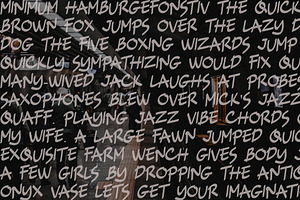 MINIMUM HAMBURGEFONSTIV THE QUICK
BROWN FOX JUMPS OVER THE LAZY
DOG THE FIVE BOXING WIZARDS JUMP
QUICKLY SYMPATHIZING WOULD FIX
MANY-WIVED JACK LAUGHS AT PROBE
SAXOPHONES BLEW OVER MICK'S JAZZ
QUAFF. PLAYING JAZZ VIBE CHORDS
MY WIFE. A LARGE FAWN JUMPED QUIC
EXQUISITE FARM WENCH GIVES BODY
A FEW GIRLS BY DROPPING THE ANTIQ
ONYX VASE LETS GET YOUR IMAGINATI